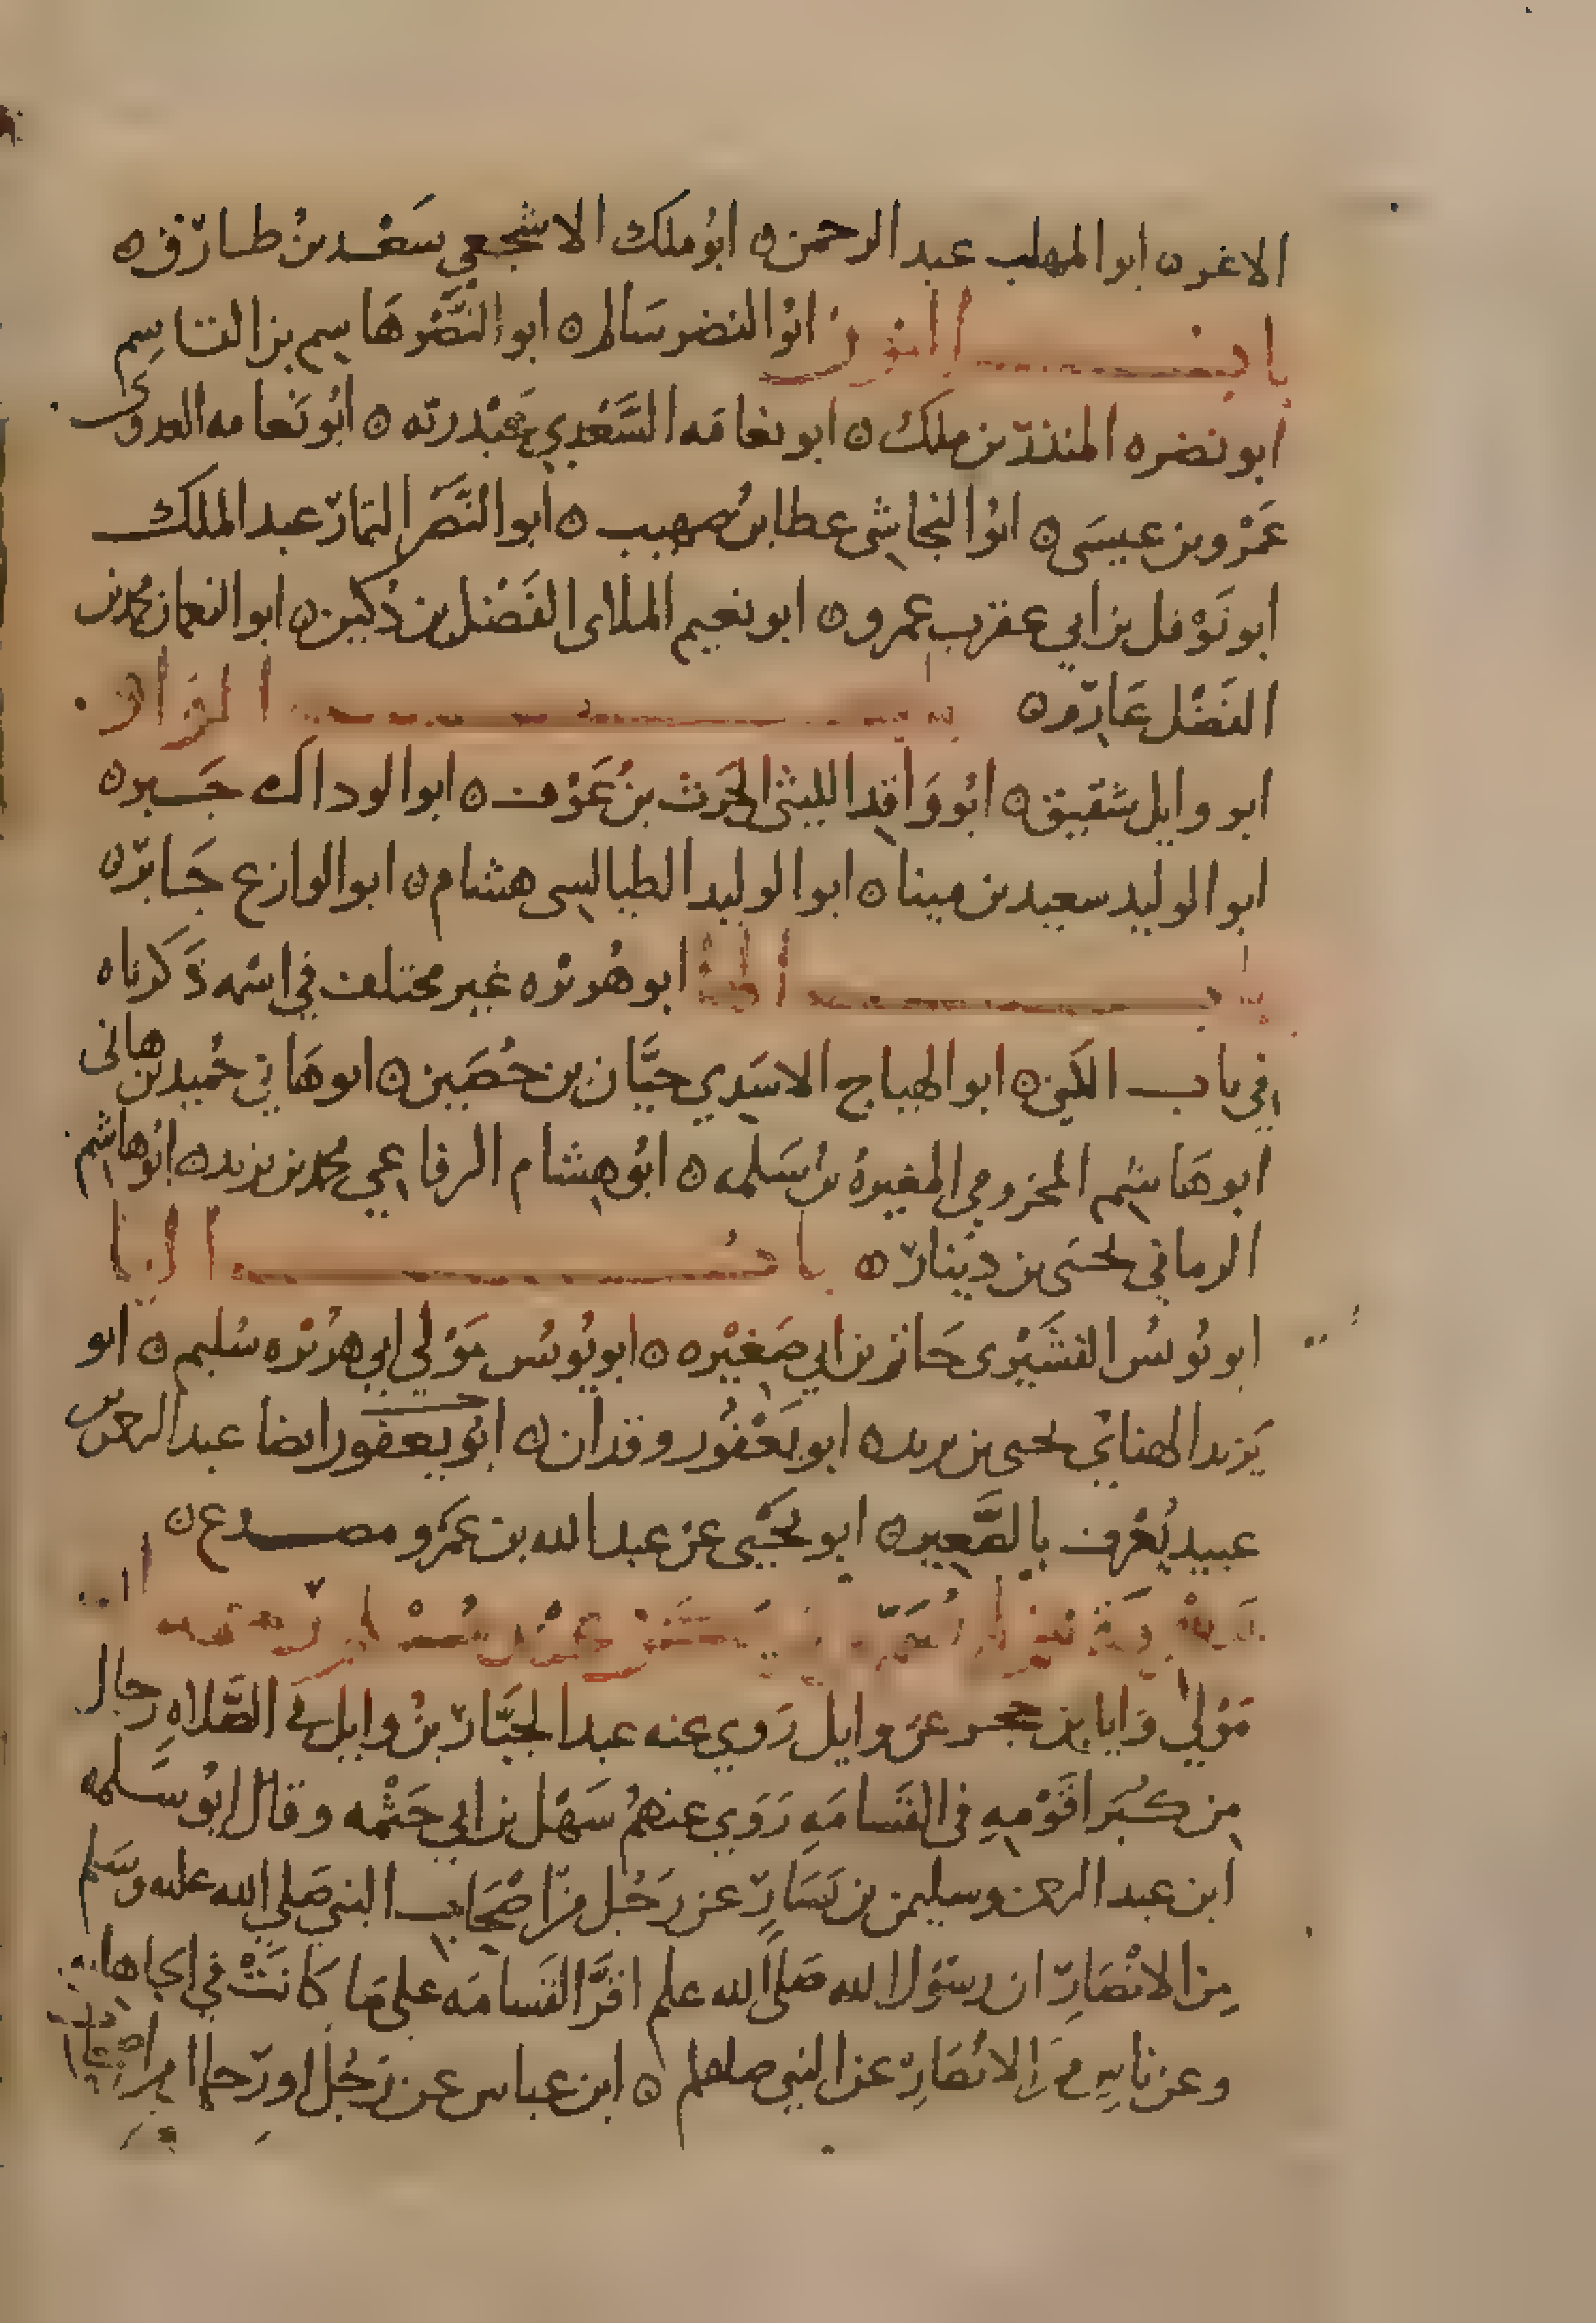 الاغر ه ابو المهلب عبد الرحمن ه ابو ملك الاشجعي سعد بن طارق ه
باب النون ابو النضر سالم ه ابو النضر هاشم بن القاسم
ابو نضره المنذر بن ملك ه ابو نعامه السعدي عبد ربه ه ابو نعامه العدوى
عمرو بن عيسى ه ابو النجاشى عطا بن صهيب ه ابو النصر التمار عبد الملك
ابو نوفل بن ابي عقرب عمرو ه ابو نعيم الملاى الفضل بن دكين ه ابو النعمان محمد بن
الفضل عارم ه باب الواو
ابو وايل شقيق ه ابو واقد الليثى الحرث بن عوف ه ابو الوداك جبر ه
ابو الوليد سعيد بن مينا ه ابو الوليد الطيالسى هشام ه ابو الوازع جابر ه
باب الها ابو هريره غير مختلف في اسمه ذكرناه
في باب الكنى ه ابو الهياج الاسدي حيان بن حصين ه ابو هاني حميد بن هانى
ابو هاشم المخزومي المغيرة بن سلمه ه ابو هشام الرفاعي محمد بن يزيد ه ابو هاشم
الرماني يحيى بن دينار ه باب اليا
ابو يونس القشيرى حاتم بن ابي صغيره ه ابو يونس مولي ابي هريره سليم ه ابو
يزيد الهنائي يحيى بن يزيد ه ابو يعفور وقدان ه ابو يعفور ايضا عبد الرحمن بن
عبيد يعرف بالصغير ه ابو يحيى عن عبد الله بن عمرو مصدع ه
مولي وايل بن حجر عن وايل روي عنه عبد الجبار بن وايل في الصلاه رجال
من كبرا قومه في القسامه روي عنهم سهل بن ابي حثمه وقال ابو سلمه
ابن عبد الرحمن وسليمن بن يسار عن رجل من اصحاب النبي صلي الله عليه وسلم
من الانصار ان رسول الله صلى الله علم اقر القسامه على ما كانت في الجاهليه
وعن ناس من الانصار عن النبي صلعلم ه ابن عباس عن رجل او رجال من اصحاب